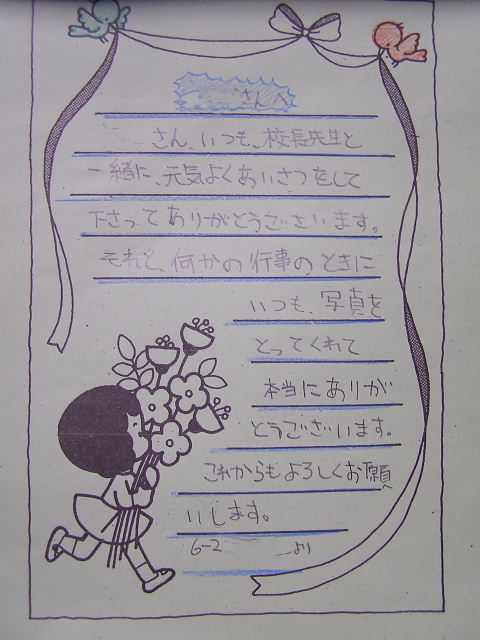 さんへ
さん、いつも、校長先生と
一緒に、元気よくあいさつをして
下さってありがとうございます。
それと、何かの行事のときに
いつも、写真を
とってくれて
本当にありが
とうございます。
これからもよろしくお願
いします。
6-2 より